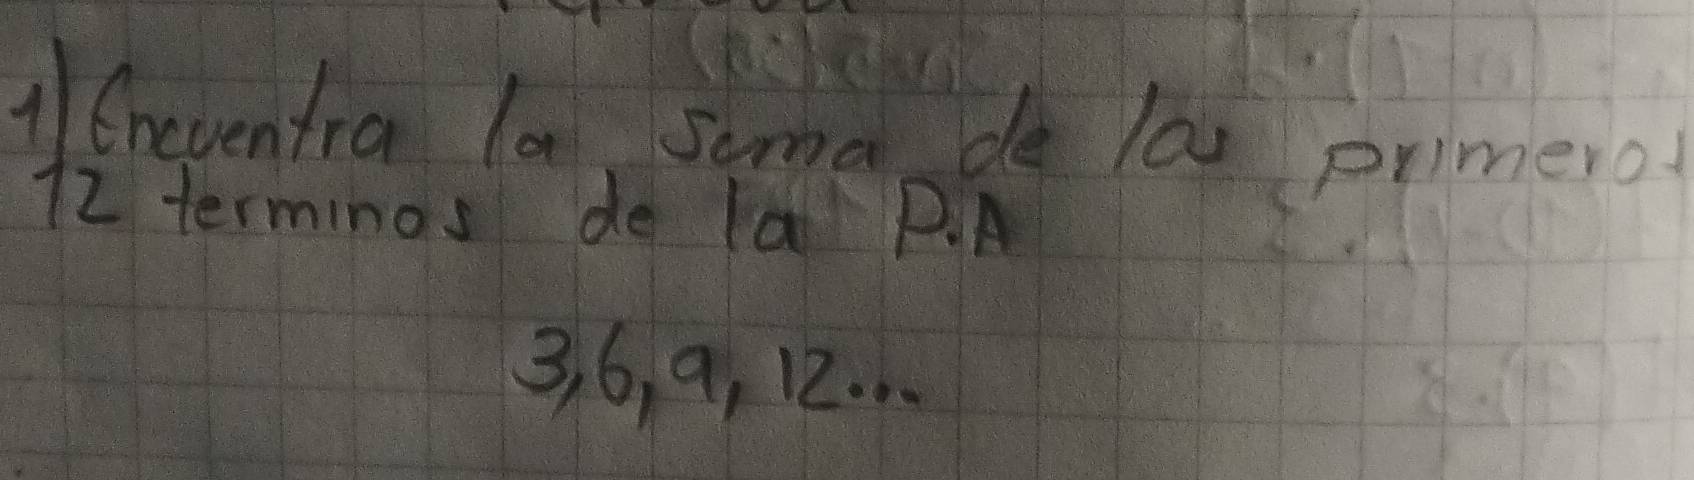 1) Encuentra la suma de los primeros
12 terminos de la P.A
3, 6, 9, 12...